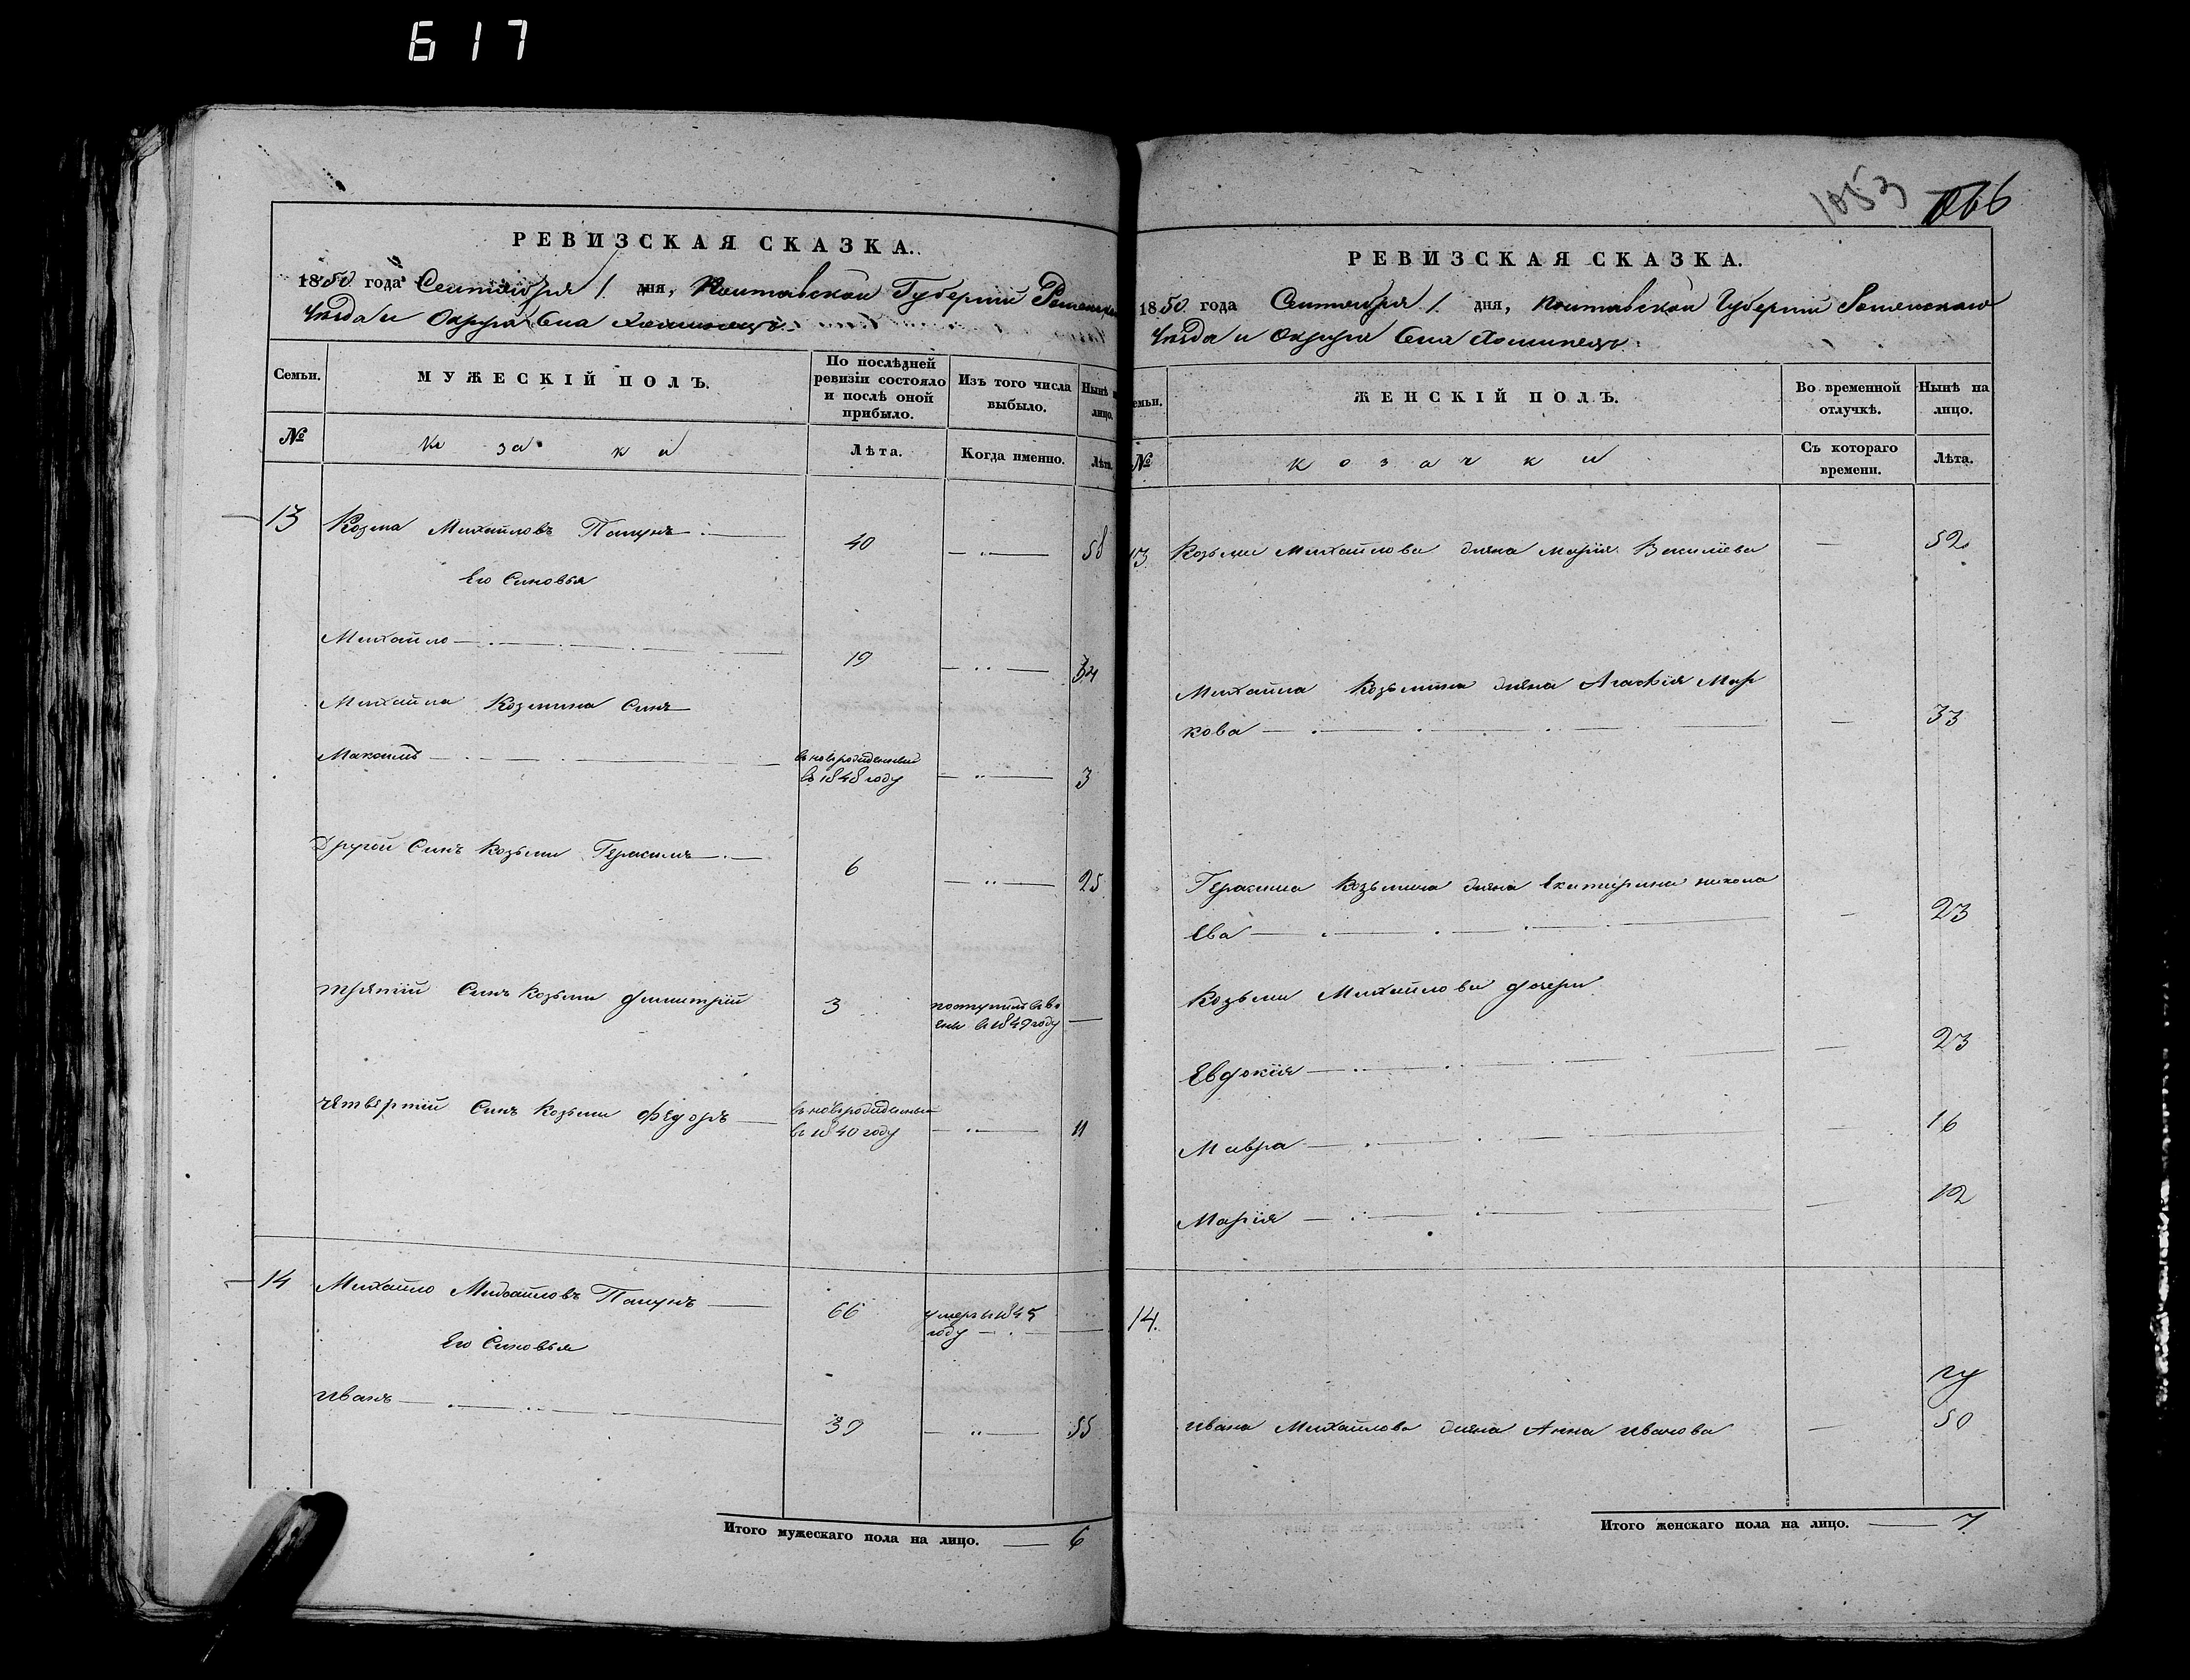 617
1053 1066
РЕВИЗСКАЯ СКАЗКА.
1850 года Сентября 1. дня, Полтавской Губерніи Роменска
Уѣзда и Округа Села Хоминецъ
Семьи. МУЖЕСКІЙ ПОЛЪ. По послѣдней ревизіи состояло и послѣ оной прибыло. Изъ того числа выбыло. Нынѣ н лицо.
№ Козаки Лѣта. Когда именно. Лѣта.
13 Козма Михайловъ 40 58
Его Синовья
Михайло 19
Михайла Козмина Синъ
Максимъ въ 1848 году 3
Другой Синъ Козьми Герасимъ 6 25
третій Синъ Козьми Димитрій 3 въ 1849 году
четвертій Синъ Козьми Федоръ въ 1840 году 11
14 Михайло Михайловъ 66 умеръ въ 1845 году
Его Синовья
Иванъ 39 55
Итого мужескаго пола на лицо. 6
РЕВИЗСКАЯ СКАЗКА.
1850 года Сентября 1. дня, Полтавской Губерніи Роменскаго
Уѣзда и Округа Села Хоминецъ
емьи. ЖЕНСКІЙ ПОЛЪ. Во временной отлучкѣ. Нынѣ на лицо.
№ козачки Съ котораго времени. Лѣта.
13 Козьми Михайлова жена Марія Василіева 52
Михайла Козьмина жена Агафія Мар
кова 33
Герасима Козьмина жена Екатерина Никола
ева 23
Козьми Михайлова дочери
Евдокія 23
Мавра 16
Марія 12
14.
Ивана Михайлова жена Анна Иванова 50
Итого женскаго пола на лицо. 7